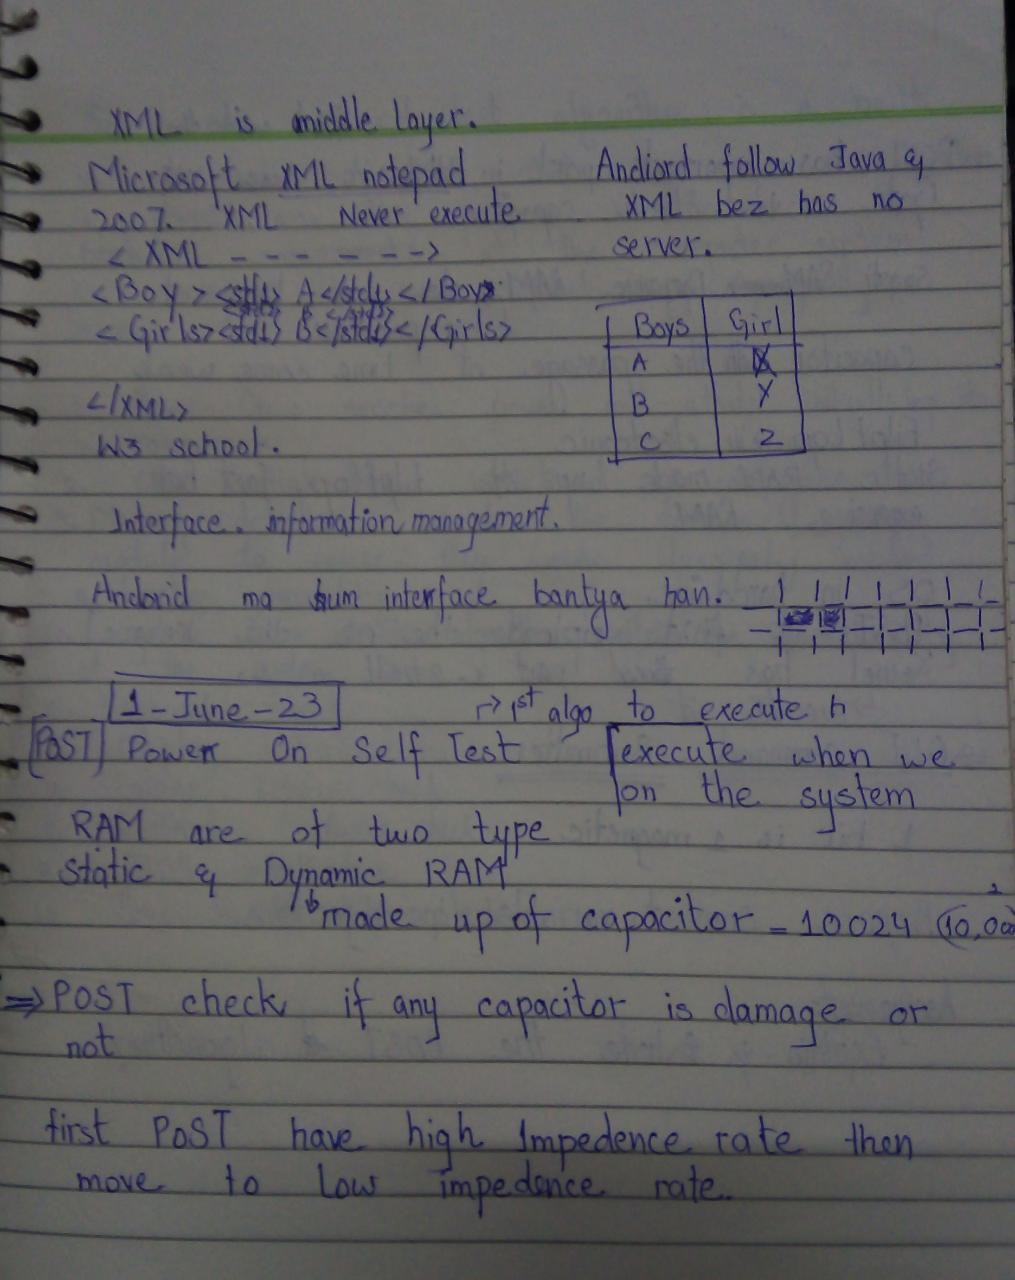 XML is middle layer.
Microsoft XML notepad
2007. XML Never execute
< XML - - - - - - ->
<Boy ><std1> A</std1></Boy>
< Girls><std1> B</std1></Girls>
</XML>
W3 school.
Andiord follow Java &
XML bez has no
server.
Boys Girl
A X
B Y
C Z
Interface. information management.
Andorid ma hum interface bantya han.
1-June-23
→ 1st algo to execute
[POST] Power On Self Test [execute when we
on the system
RAM are of two type
Static & Dynamic RAM
made up of capacitor = 10024
⇒ POST check if any capacitor is damage or
not
first POST have high Impedence rate then
move to Low impedence rate.